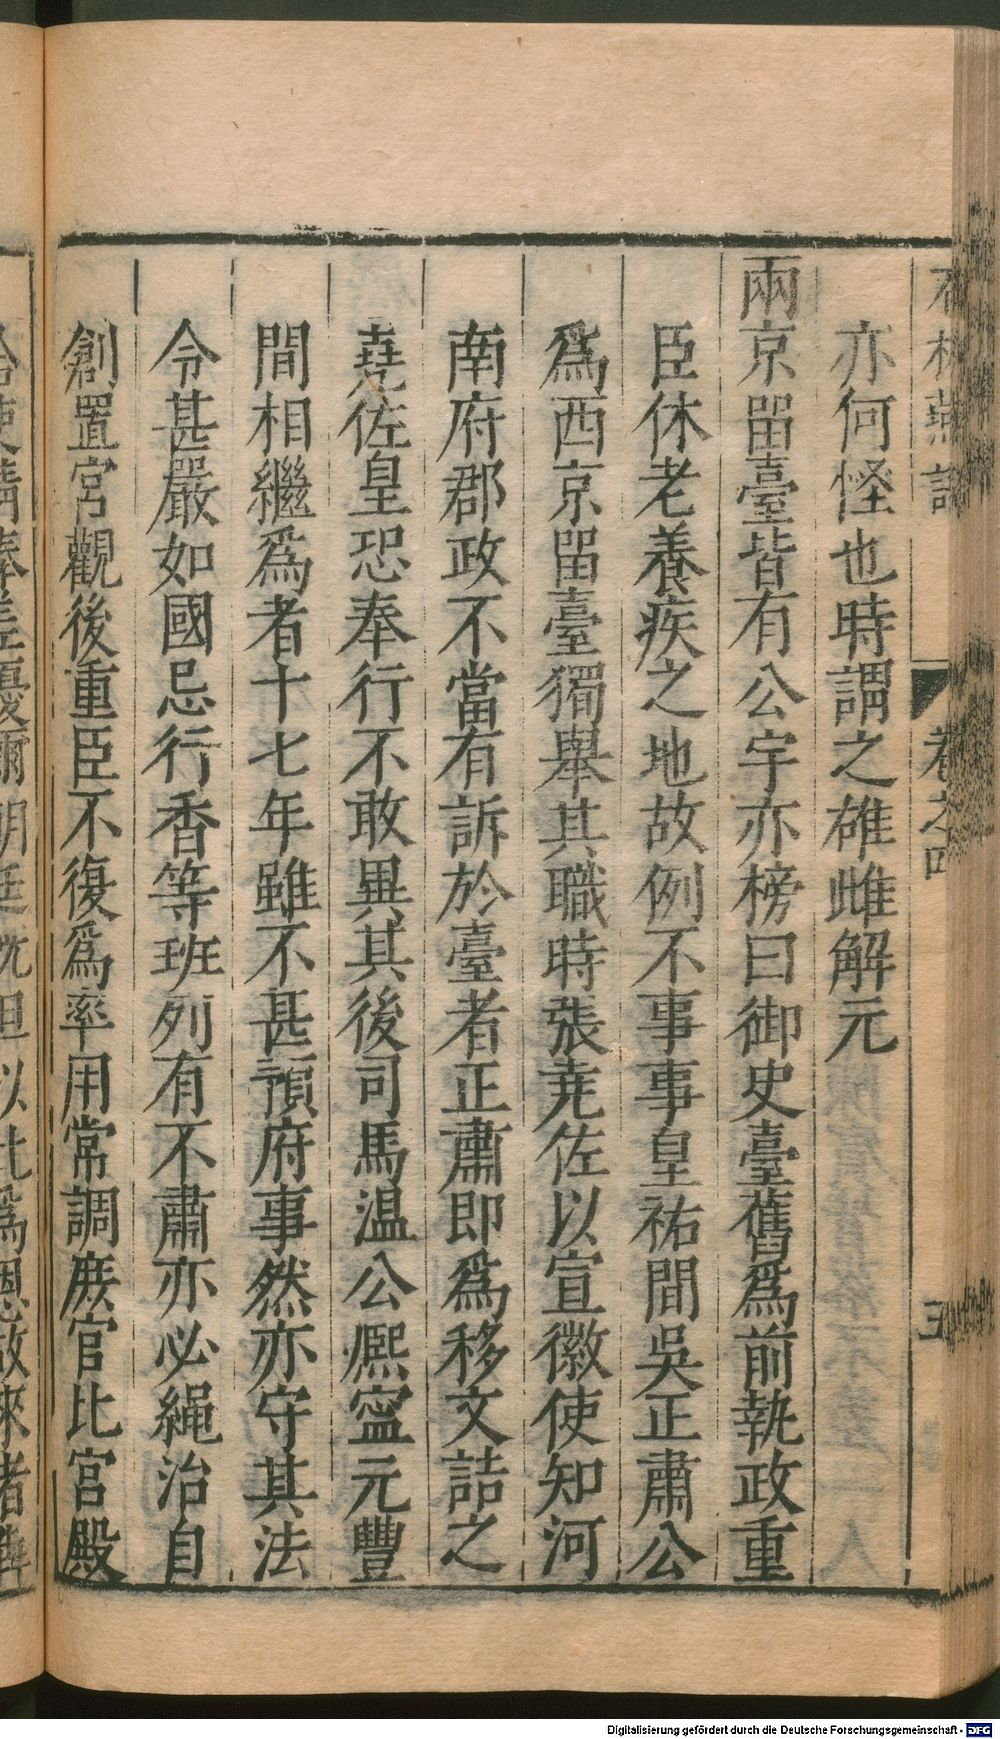 石林燕語　卷之四　五
亦何怪也時謂之雄雌解元
兩京畱臺皆有公宇亦榜曰御史臺舊爲前執政重
臣休老養疾之地故例不事事皇祐間吳正肅公
爲西京畱臺獨舉其職時張堯佐以宣徽使知河
南府郡政不當有訴於臺者正肅即爲移文詰之
堯佐皇恐奉行不敢異其後司馬温公熈寧元豐
間相繼爲者十七年雖不甚預府事然亦守其法
令甚嚴如國忌行香等班列有不肅亦必繩治自
創置宮觀後重臣不復爲率用常調庶官比宮殿
Digitalisierung gefördert durch die Deutsche Forschungsgemeinschaft - DFG